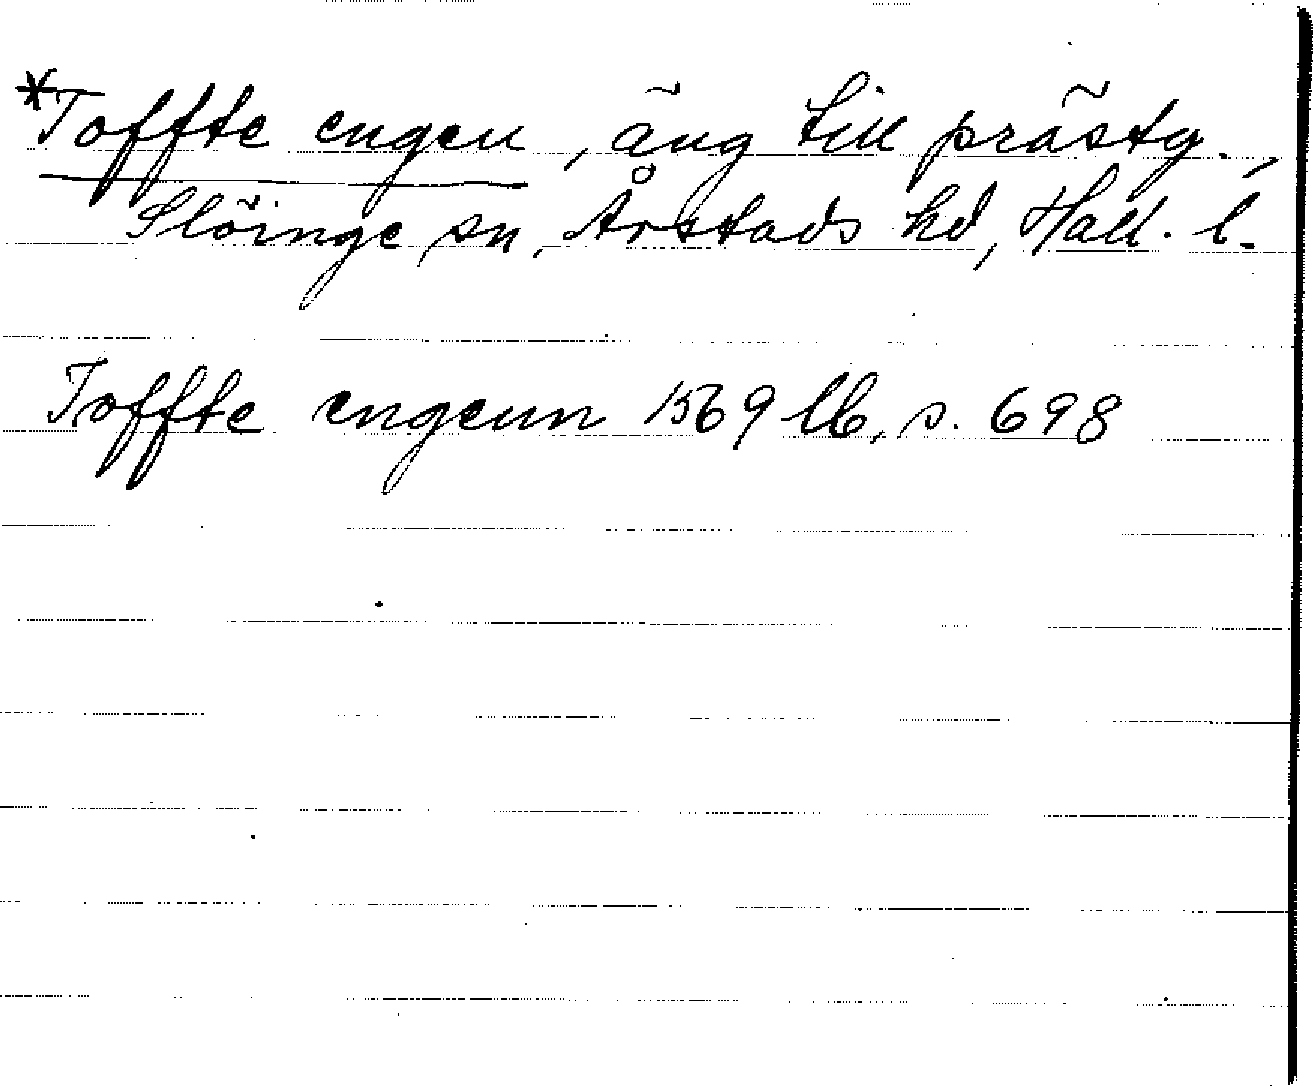 *Toffte engen, äng till prästg.,
Slöinge sn, Årstads hd, Hall. l.
Toffte engenn 1569 lb, s. 698